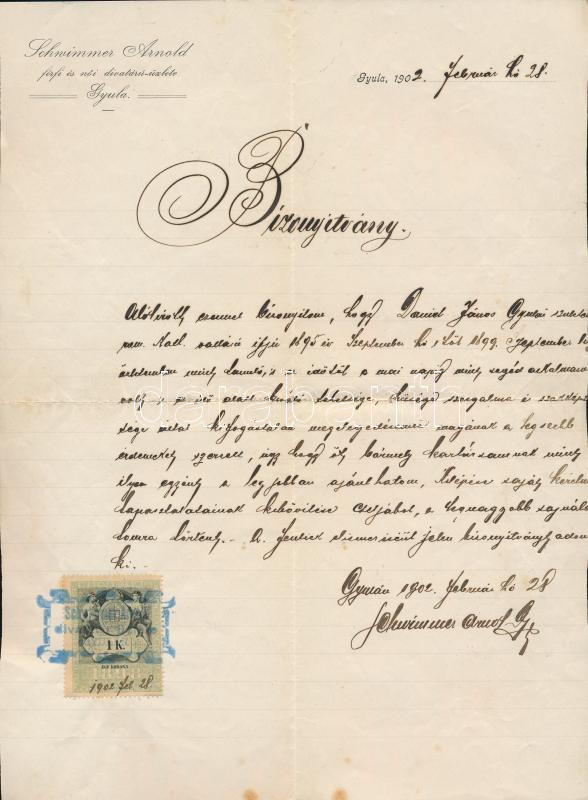 Schwimmer Arnold
férfi és női divatárú-üzlete
Gyula.
Gyula, 1902. Február hó 28.
Bizonyítvány.
Alólirott ezennel bizonyitom, hogy Daniel János Gyulai születésü
rom. Kath. vallású ifjú 1895 év Szeptember hó 1től 1899. September
üzletemben mint tanuló, s az időtől a mai napig mint segéd alkalmazva
volt s ez idő alatt kiváló tehetsége, hűsége szorgalma és szakképzett
sége által kifogástalan megelégedésemre magának a legszebb
érdemeket szerzett, úgy hogy őt bármely kartársamnak mint
ilyen egyént a legjobban ajánlhatom, kilépése saját kérelme
tapasztalatainak kibővitése céljából, a legnagyobb sajnála
tomra történt. – A fentiek elismeréseül jelen bizonyitványt adom
ki. –
Gyulán 1902. február hó 28
Schwimmer Arnold
1 K.
EGY KORONA
1902 feb 28.
darabanth